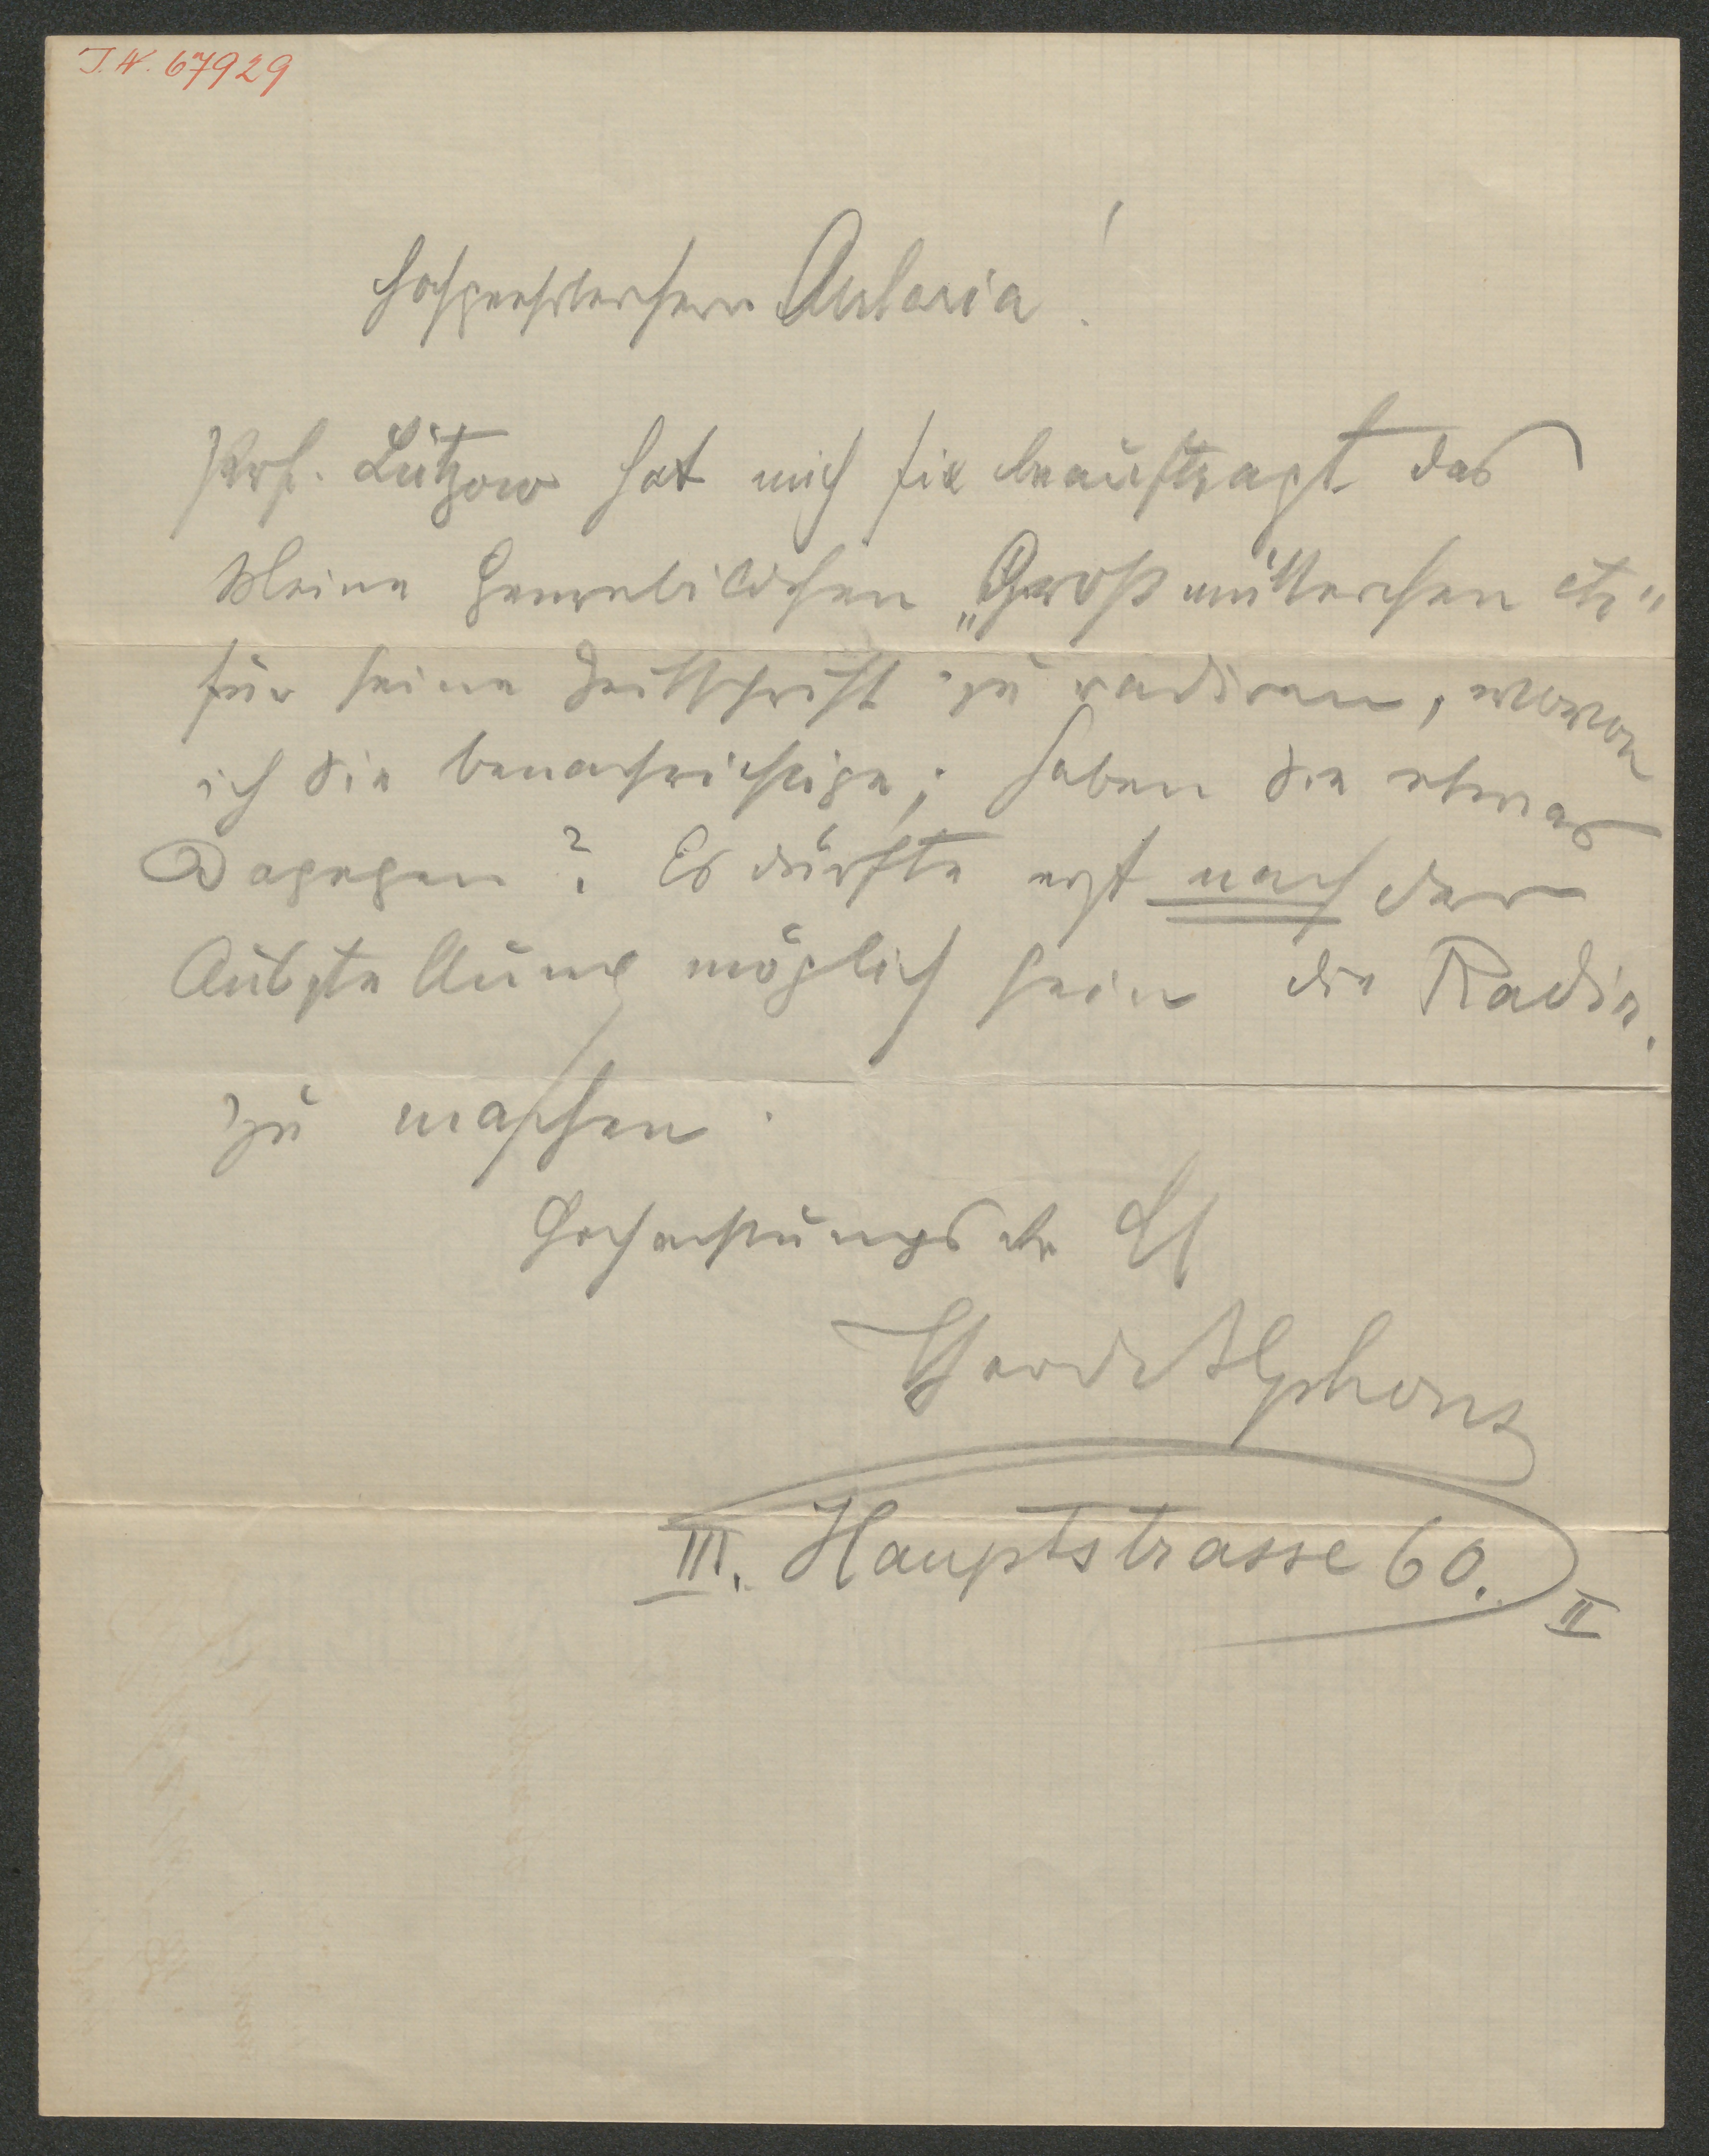 I.N. 67929
Hochgeehrter Herr Artaria!
Prof. Lützow hat mich beauftragt das
kleine Genrebildchen „Großmütterchen etc"
für seine Zeitschrift zu radiren, wovon
ich Sie benachrichtige; haben Sie etwas
dagegen? Es dürfte erst nach der
Ausstellung möglich sein die Radir.
zu machen.
Hochachtungs
Alphons
III. Hauptstrasse 60. II